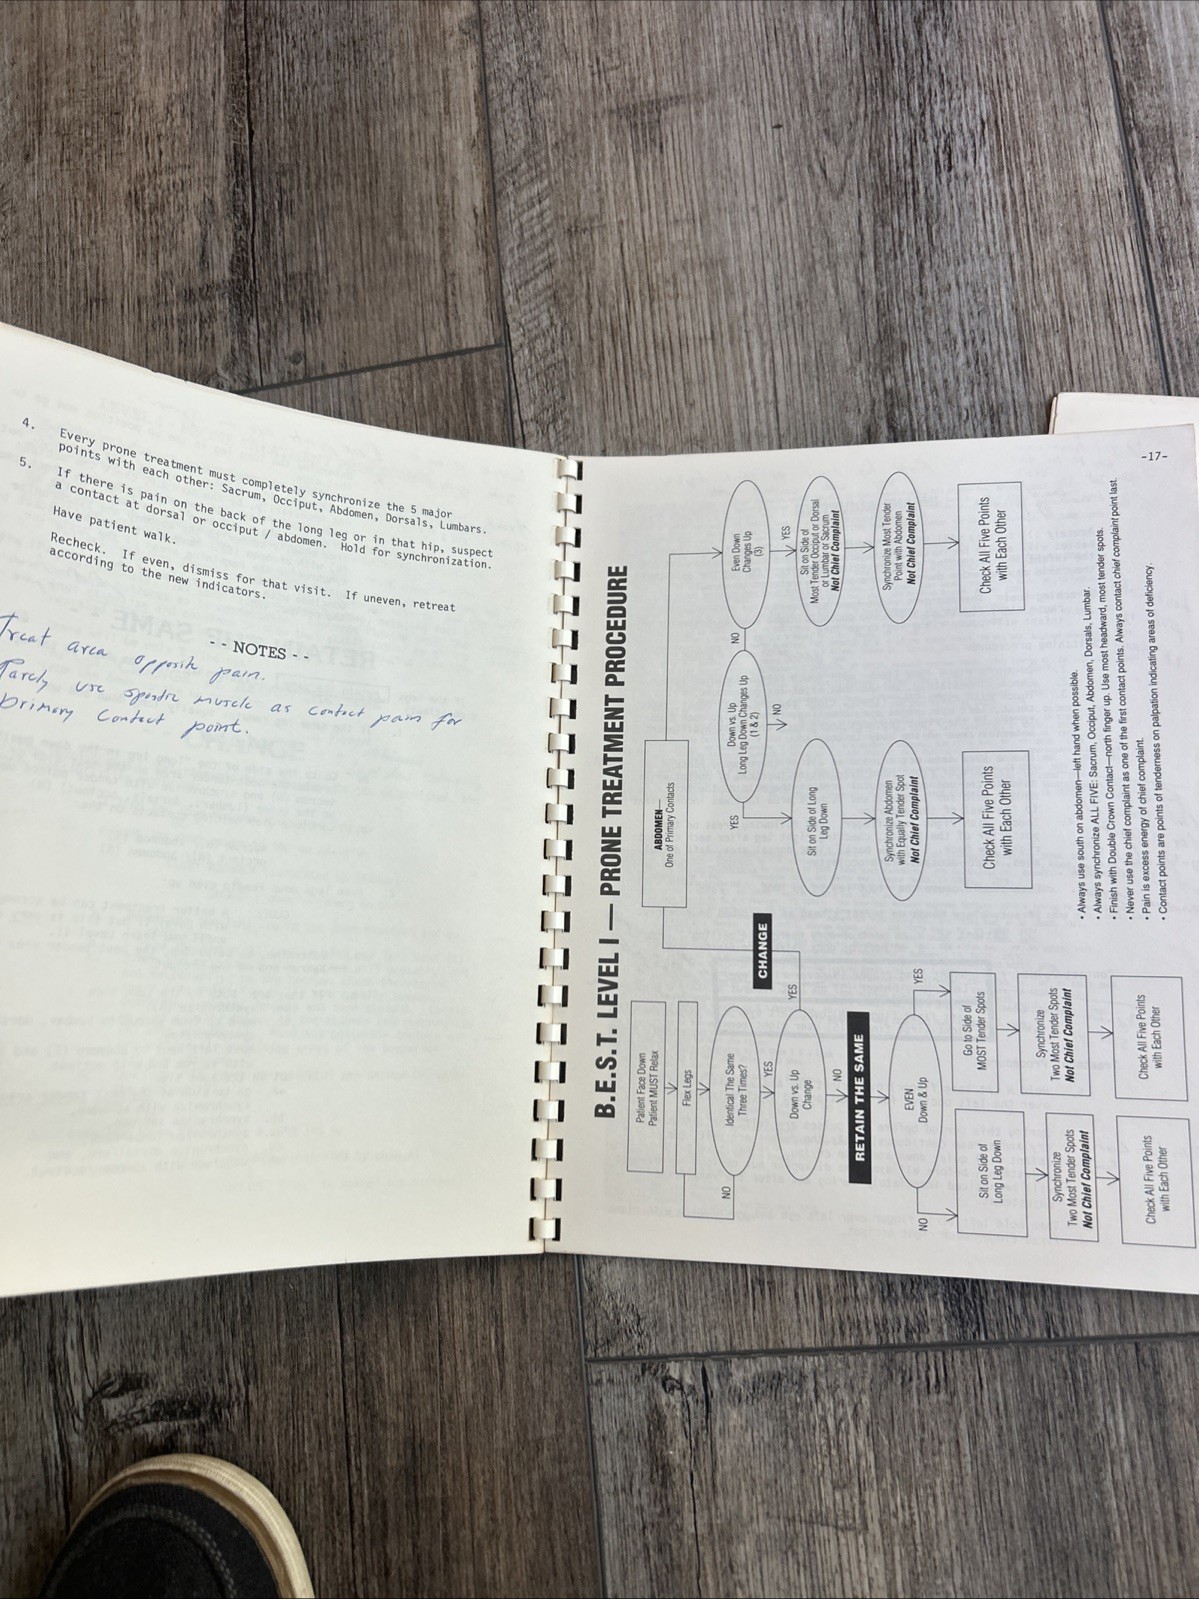 4. Every prone treatment must completely synchronize the 5 major
points with each other: Sacrum, Occiput, Abdomen, Dorsals, Lumbars.
5. If there is pain on the back of the long leg or in that hip, suspect
a contact at dorsal or occiput / abdomen. Hold for synchronization.
Have patient walk.
Recheck. If even, dismiss for that visit. If uneven, retreat
according to the new indicators.
- - NOTES - -
Treat area opposite pain.
Rarely use spastic muscle as contact pain for
primary contact point.
B.E.S.T. LEVEL I — PRONE TREATMENT PROCEDURE
Patient Face Down
Patient MUST Relax
Flex Legs
Identical The Same
Three Times?
NO
YES
Down vs. Up
Change
YES
NO
CHANGE
RETAIN THE SAME
EVEN
Down & Up
NO
YES
Sit on Side of
Long Leg Down
Synchronize
Two Most Tender Spots
Not Chief Complaint
Check All Five Points
with Each Other
Go to Side of
MOST Tender Spots
Synchronize
Two Most Tender Spots
Not Chief Complaint
Check All Five Points
with Each Other
ABDOMEN—
One of Primary Contacts
Down vs. Up
Long Leg Down Changes Up
(1 & 2)
YES
NO
NO
Sit on Side of Long
Leg Down
Synchronize Abdomen
with Equally Tender Spot
Not Chief Complaint
Check All Five Points
with Each Other
Even Down
Changes Up
(3)
YES
Sit on Side of
Most Tender Occiput or Dorsal
or Lumbar or Sacrum
Not Chief Complaint
Synchronize Most Tender
Point with Abdomen
Not Chief Complaint
Check All Five Points
with Each Other
• Always use south on abdomen—left hand when possible.
• Always synchronize ALL FIVE: Sacrum, Occiput, Abdomen, Dorsals, Lumbar.
• Finish with Double Crown Contact—north finger up. Use most headward, most tender spots.
• Never use the chief complaint as one of the first contact points. Always contact chief complaint point last.
• Pain is excess energy of chief complaint.
• Contact points are points of tenderness on palpation indicating areas of deficiency.
-17-